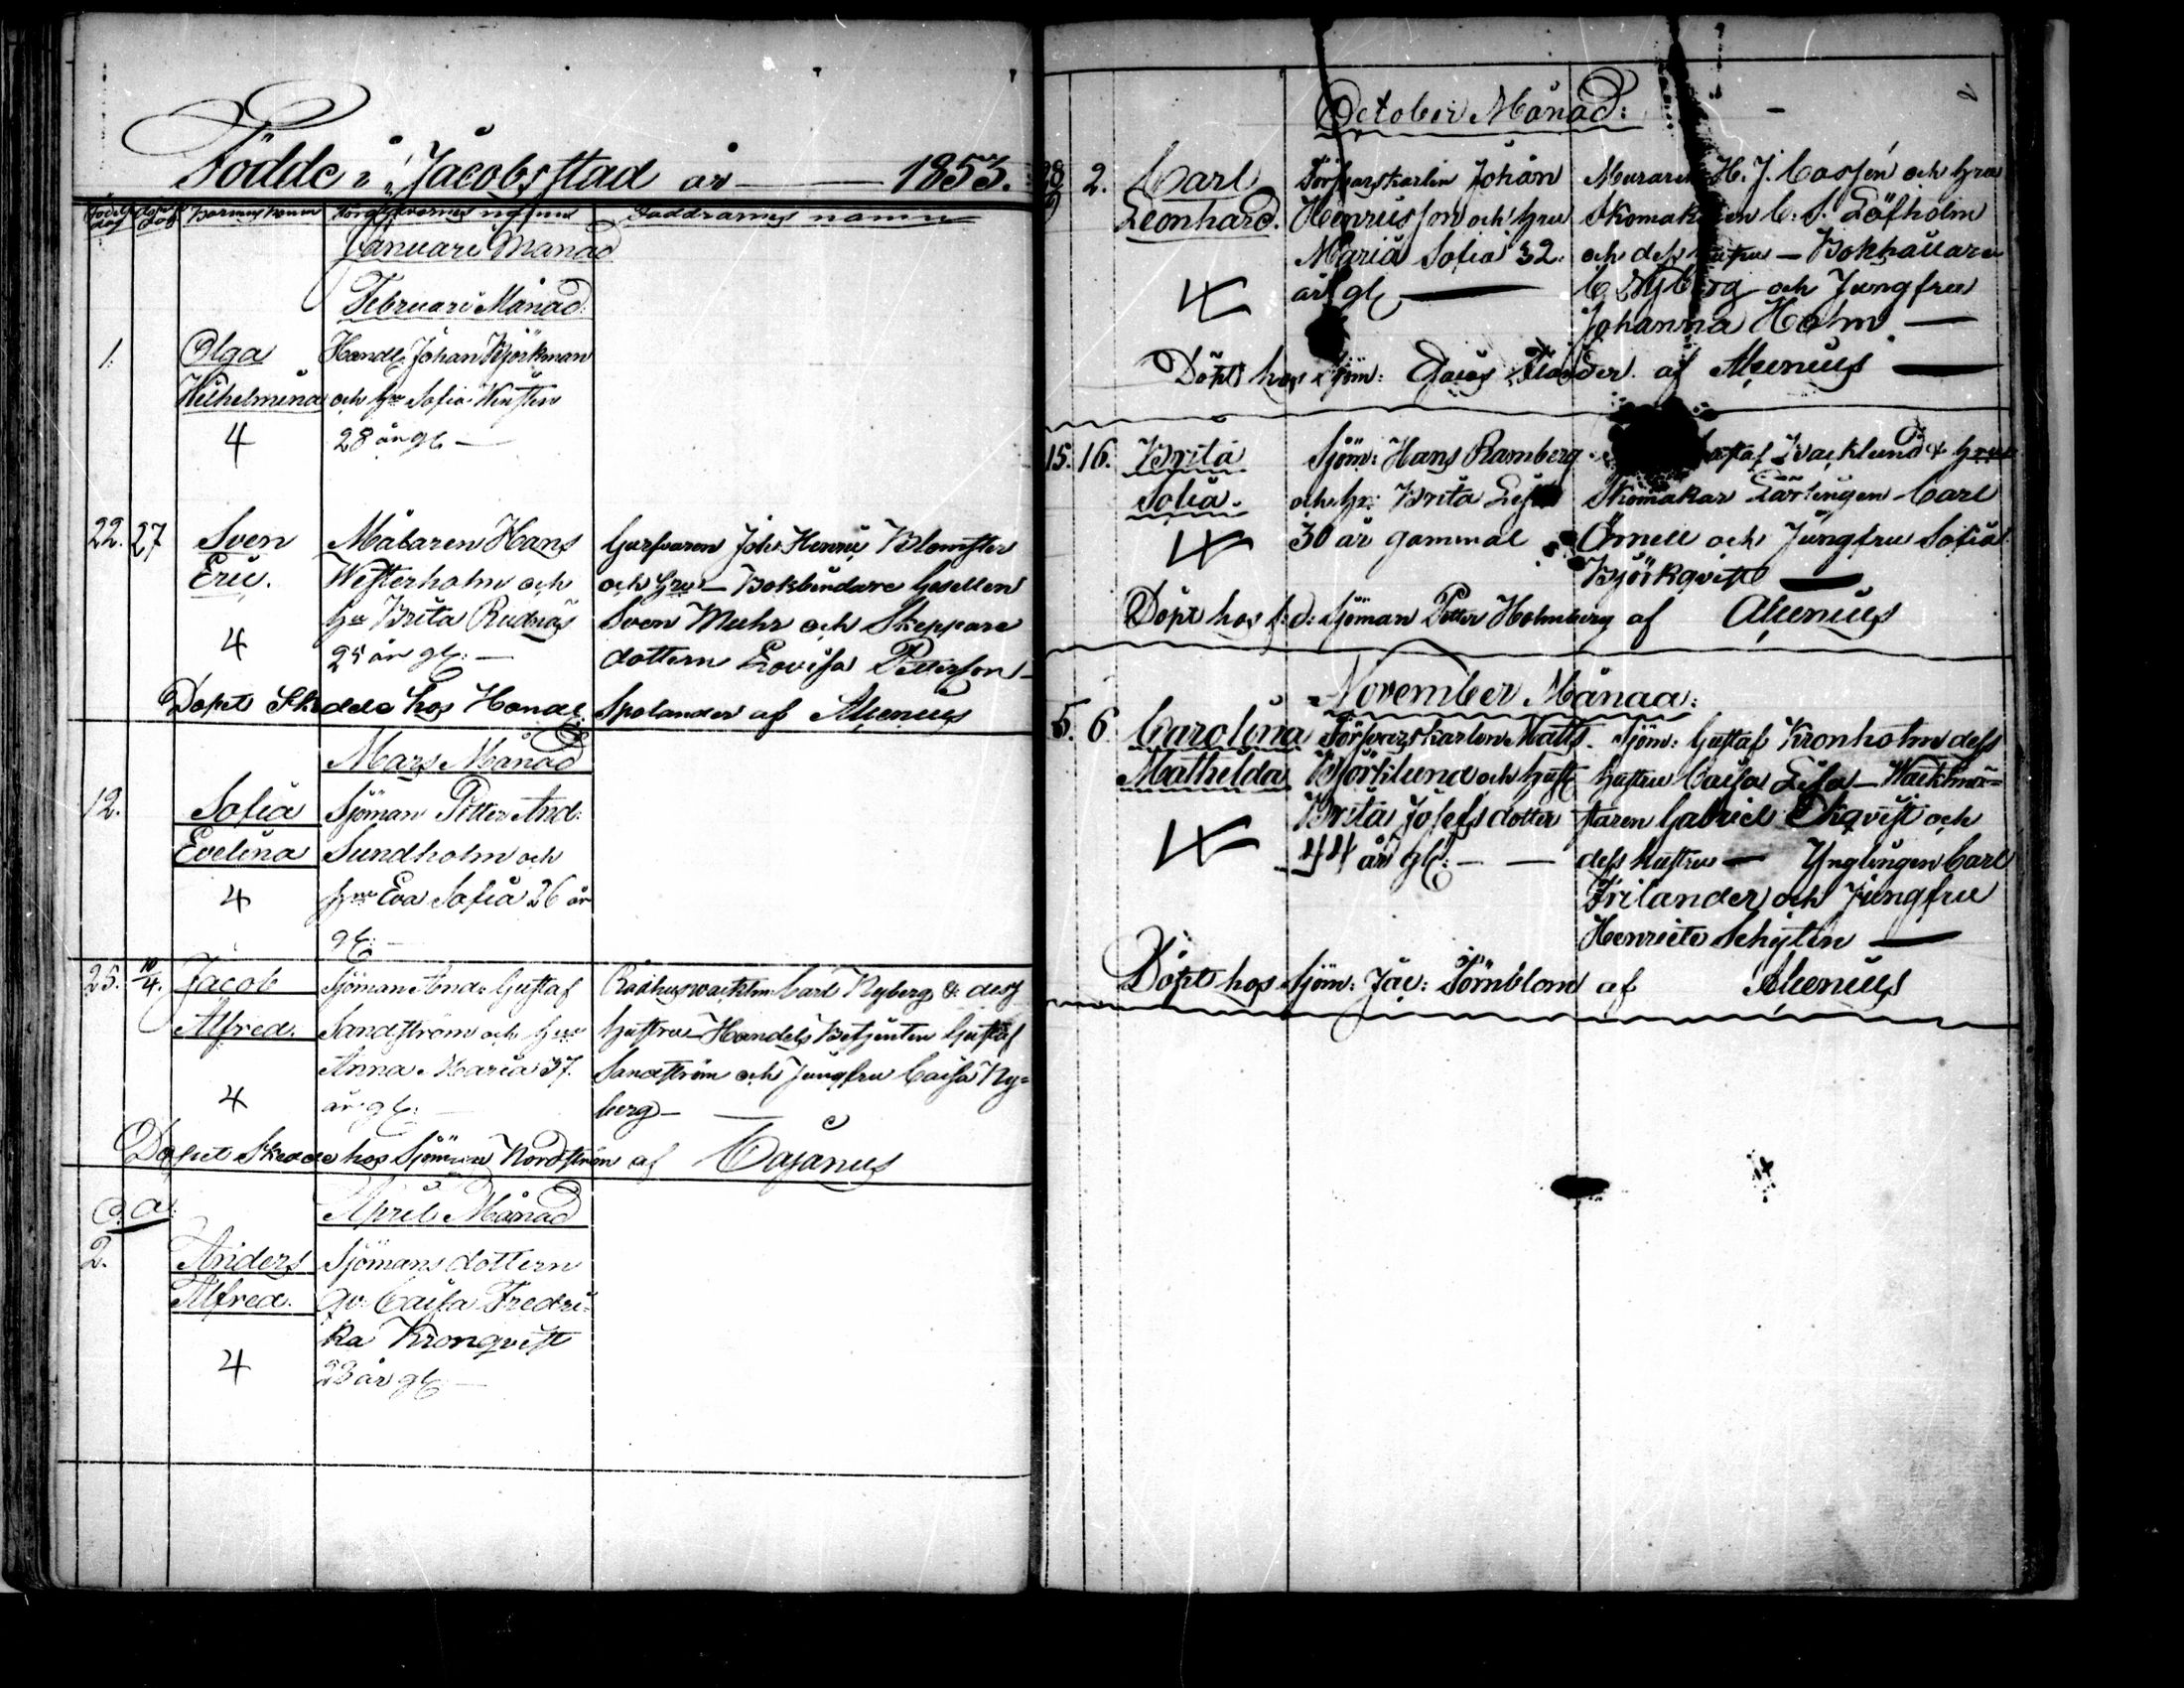 Födde i Jacobsstad år — 1853.
Födelse dag Döpelse dag Barnens namn Föräldrarnes namn Faddrarnes namn
Januari Månad
Februari Månad:
1. Olga Handl. Johan Björkman
Wilhelmina och hu Sofia
4 28 år gl. —
22. 27 Sven Målaren Hans Garfvaren Joh: Henric Blomster
Eric. Westerholm och och hru — Bokbindare Gesellen
hu Brita Rudnäs Sven Muhr och Skeppare
4 25 år gl: — dottern Lovisa Petterson —
Dopet Skedde hos Handl. Spolander af Alcenius
Mars Månad
12. Sofia Sjöman Petter And:
Evelina Sundholm och
4 hu Eva Sofia 26 år
gl: —
25. 10/4. Jacob Sjöman And: Gustaf Rådhuswacktm: Carl Nyberg & dess
Alfred. Sandström och hu hustru — Handels Betjenten Gustaf
Anna Maria 37. Sandström och Jungfru Caisa Ny=
4 år gl: — berg — —
Dopet Skedde hos Sjöman Nordström af Cajanus
O. a: April Månad
2. Anders Sjömans dottern
Alfred. qv: Caisa Fredri=
ka Kronqvist
4 23 år gl: —
October Månad:
28/9 2. Carl Försvarskarlen Johan Muraren H. J. Casén och hru
Leonhard. Henricsson och hru Skomakaren C. S. Löfholm
Maria Sofia 32. och dess hustru — Bokhållare
4 år gl — C. Nyberg och Jungfru
Johanna Holm —
Döpt hos Sjöm: af Alcenius —
15. 16. Brita Sjöm: Hans Ramberg Backlund & hru
Sofia. och hr: Brita Lisa Skomakar Lärlingen Carl
4 30 år gammal Örnell och Jungfru Sofia
Björkqvist —
Döpt hos f: d: Sjöman Petter Holmberg af Alcenius
November Månad:
5. 6. Carolina Försvarskarlen Matts Sjöm: Gustaf Kronholm dess
Mathilda Björklund och hust hustru Caisa Lisa — Wacktmä=
Brita Josefsdotter staren Gabriel Ekqvist och
4 44 år gl: — — dess hustru — Ynglingen Carl
Frilander och Jungfru
Henriete Schylin —
Döpt hos Sjöm: Jac: Törnblom af Alcenius